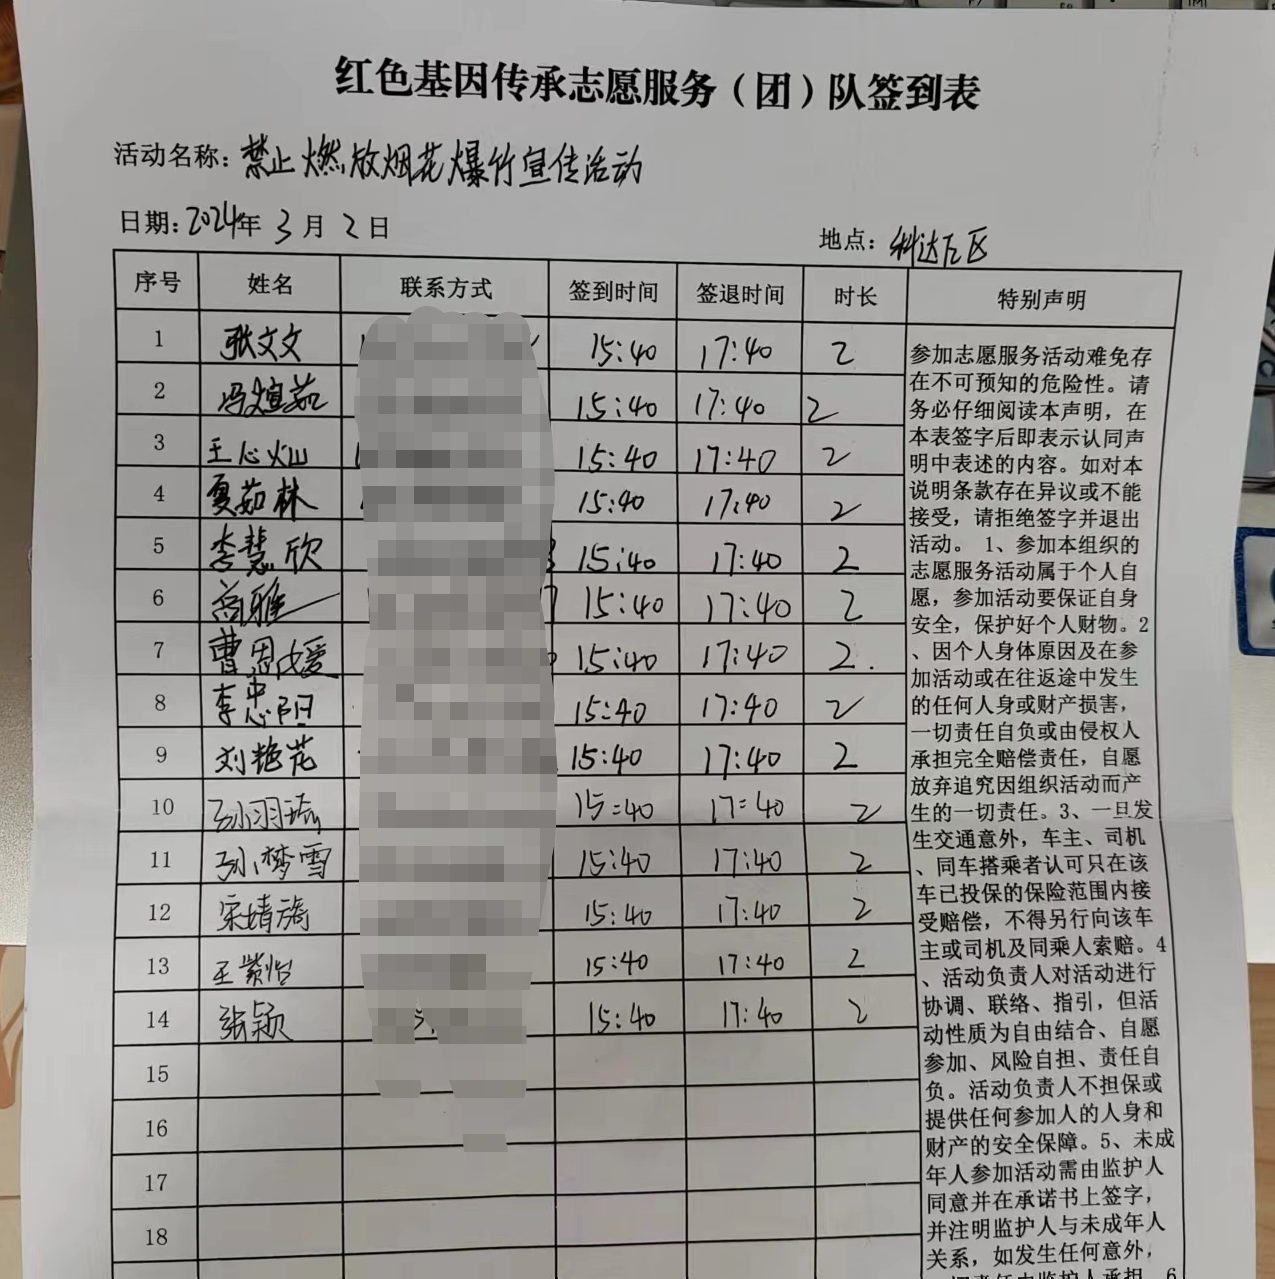 红色基因传承志愿服务（团）队签到表
活动名称：禁止燃放烟花爆竹宣传活动
日期：2024年 3月 2日
地点：科达左区
序号 姓名 联系方式 签到时间 签退时间 时长 特别声明
1 张文文 15:40 17:40 2
2 冯煊茹 15:40 17:40 2
3 王心灿 15:40 17:40 2
4 夏茹林 15:40 17:40 2
5 李慧欣 15:40 17:40 2
6 雅一 15:40 17:40 2
7 曹恩媛 15:40 17:40 2.
8 李忠阳 15:40 17:40 2
9 刘艳花 15:40 17:40 2
10 孙羽 15:40 17:40 2
11 孙梦雪 15:40 17:40 2
12 宋婧漪 15:40 17:40 2
13 王紫怡 15:40 17:40 2
14 张颖 15:40 17:40 2
15
16
17
18
参加志愿服务活动难免存
在不可预知的危险性。请
务必仔细阅读本声明，在
本表签字后即表示认同声
明中表述的内容。如对本
说明条款存在异议或不能
接受，请拒绝签字并退出
活动。 1、参加本组织的
志愿服务活动属于个人自
愿，参加活动要保证自身
安全，保护好个人财物。2
、因个人身体原因及在参
加活动或在往返途中发生
的任何人身或财产损害，
一切责任自负或由侵权人
承担完全赔偿责任，自愿
放弃追究因组织活动而产
生的一切责任。3、一旦发
生交通意外，车主、司机
、同车搭乘者认可只在该
车已投保的保险范围内接
受赔偿，不得另行向该车
主或司机及同乘人索赔。4
、活动负责人对活动进行
协调、联络、指引，但活
动性质为自由结合、自愿
参加、风险自担、责任自
负。活动负责人不担保或
提供任何参加人的人身和
财产的安全保障。5、未成
年人参加活动需由监护人
同意并在承诺书上签字，
并注明监护人与未成年人
关系，如发生任何意外，